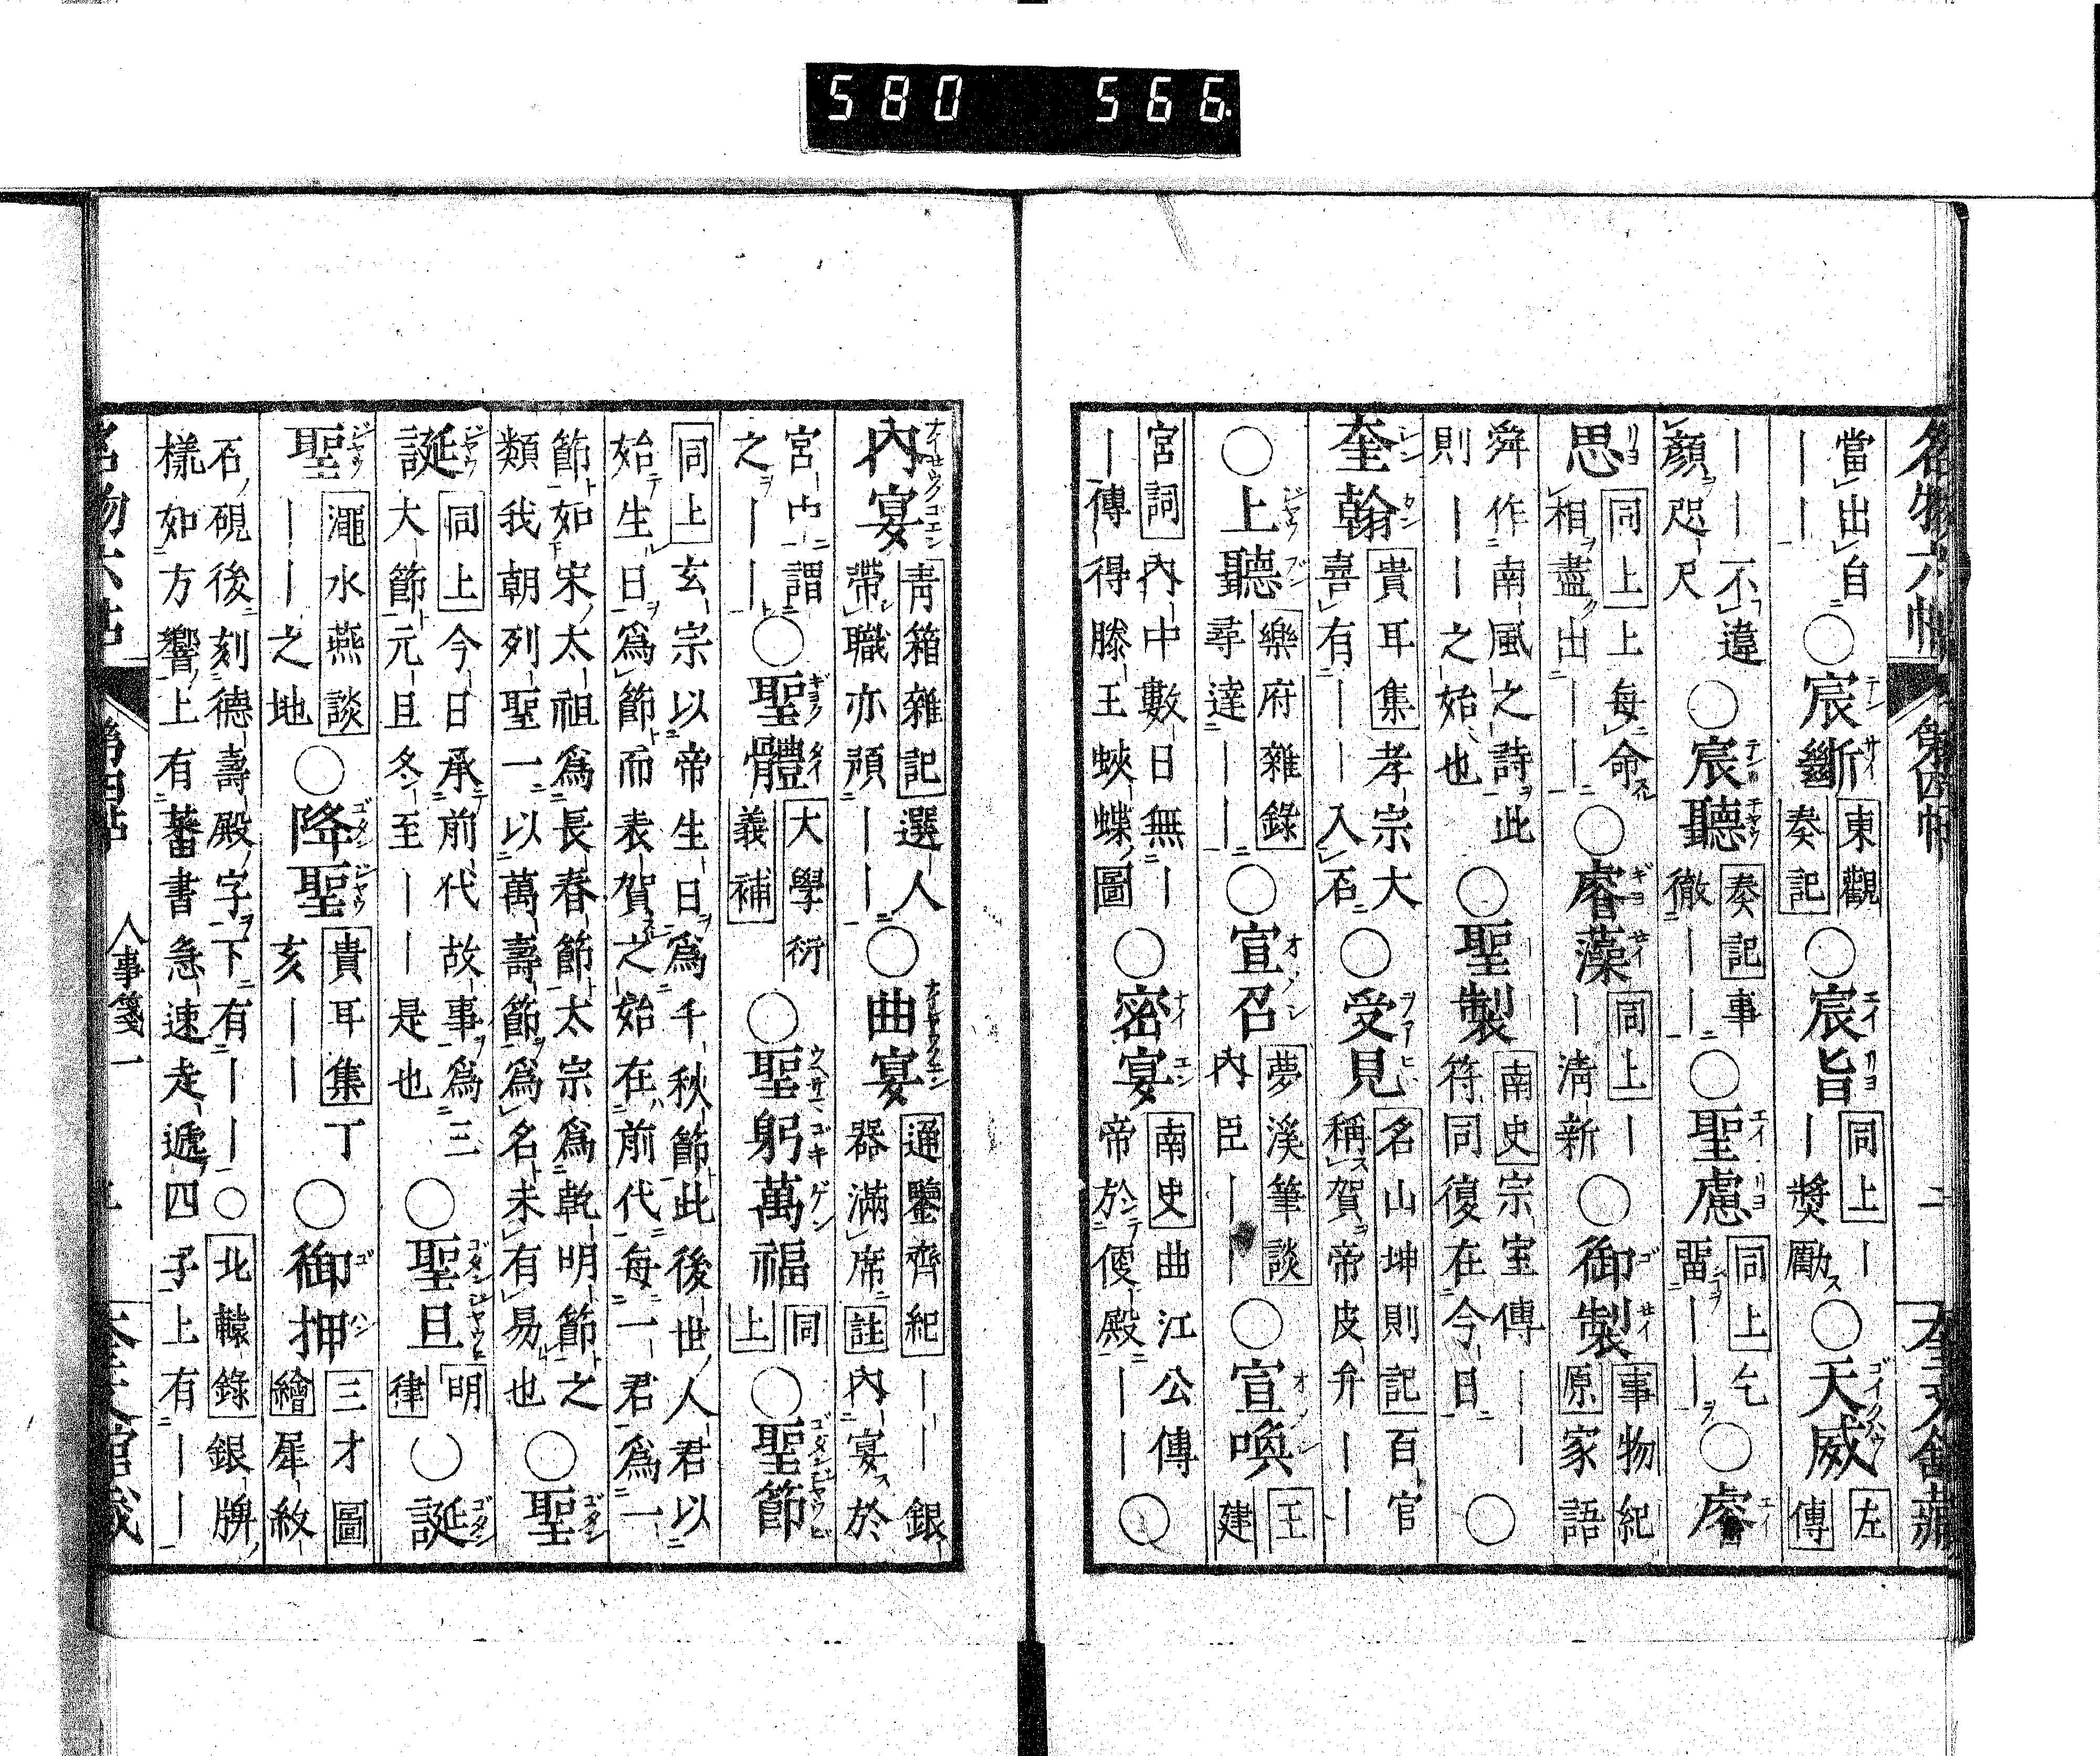 580 566
名物六帖 第四帖 二 奎文舘藏
當出自
——
○宸斷
東觀
奏記
○宸旨
同上—
—獎勵
○天威
左
傳
——不違
顏咫尺
○宸聽
奏記事
徹——
○聖慮
同上乞
畱——
○睿
思
同上上每命
相盡出——
○睿藻
同上—
—淸新
○御製
事物紀
原家語
舜作南風之詩此
則——之始也
○聖製
南史宗室傳——
符同復在今日
○
奎翰
貴耳集孝宗大
喜有——入石
○受見
名山坤則記百官
稱賀帝皮弁——
○上聽
樂府雜錄
尋達——
○宣召
夢溪筆談
內臣——
○宣喚
王
建
宮詞內中數日無—
—傳得滕王蛺蝶圖
○密宴
南史曲江公傳
帝於便殿——
○
內宴
靑箱雜記選人
帶職亦預——
○曲宴
通鑒齊紀——銀
器滿席註內宴於
宮中謂
之——
○聖體
大學衍
義補
○聖躬萬福
同
上
○聖節
同上玄宗以帝生日爲千秋節此後世人君以
始生日爲節而表賀之始在前代每一君爲一
節如宋太祖爲長春節太宗爲乾明節之
類我朝列聖一以萬壽節爲名未有易也
○聖
誕
同上今日承前代故事爲三
大節元旦冬至——是也
○聖旦
明
律
○誕
聖
澠水燕談
——之地
○降聖
貴耳集丁
亥——
○御押
三才圖
繪犀紋
石硯後刻德壽殿字下有——○北轅錄銀牌
樣如方響上有蕃書急速走遞四子上有——
名物六帖 第四帖 人事箋一 奎文舘藏